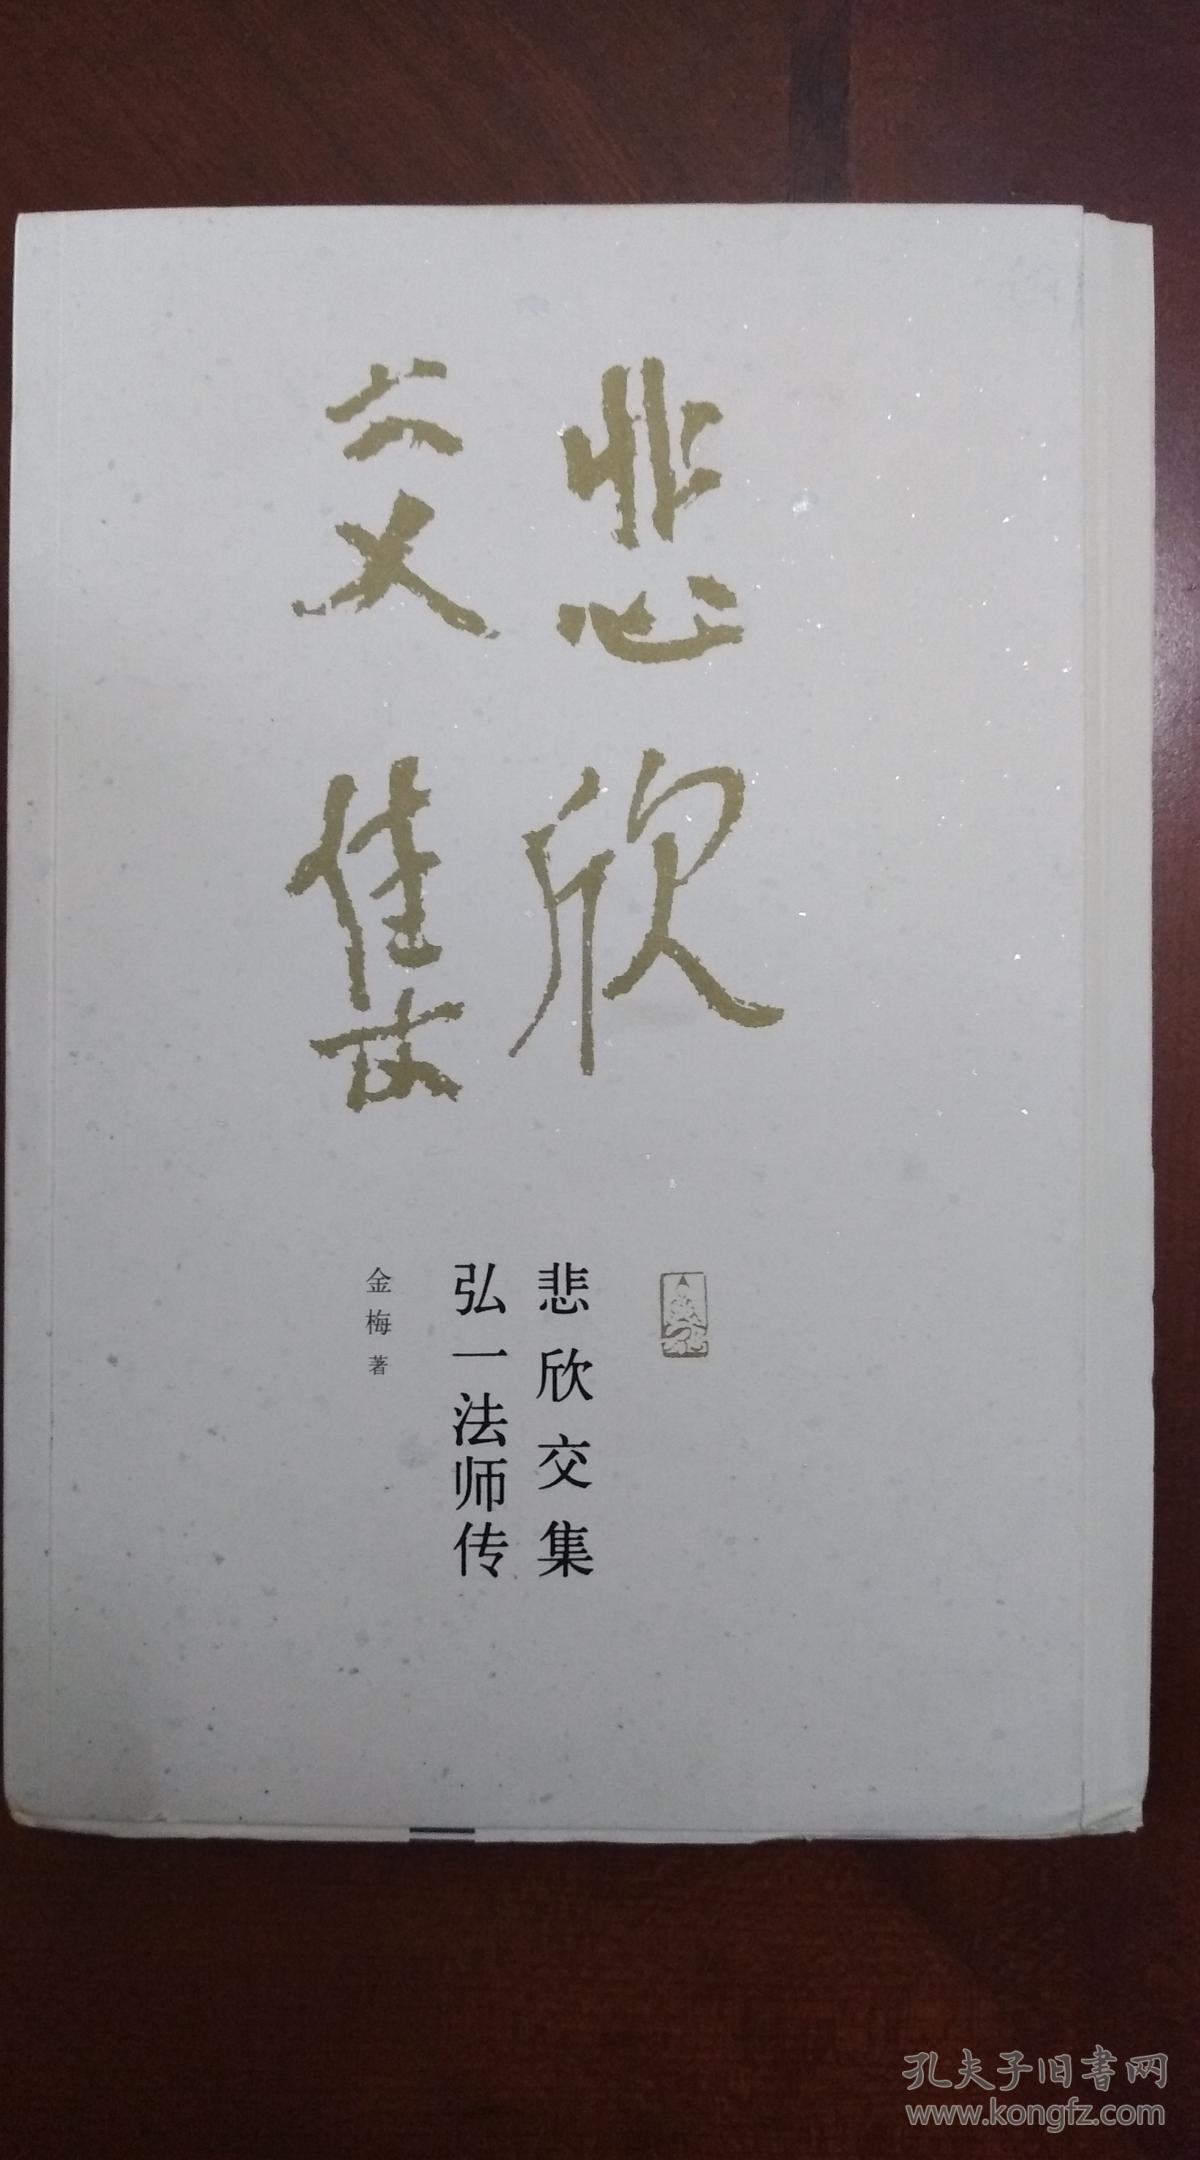 悲欣
交集
悲欣交集
弘一法师传
金梅著
孔夫子旧书网
www.kongfz.com